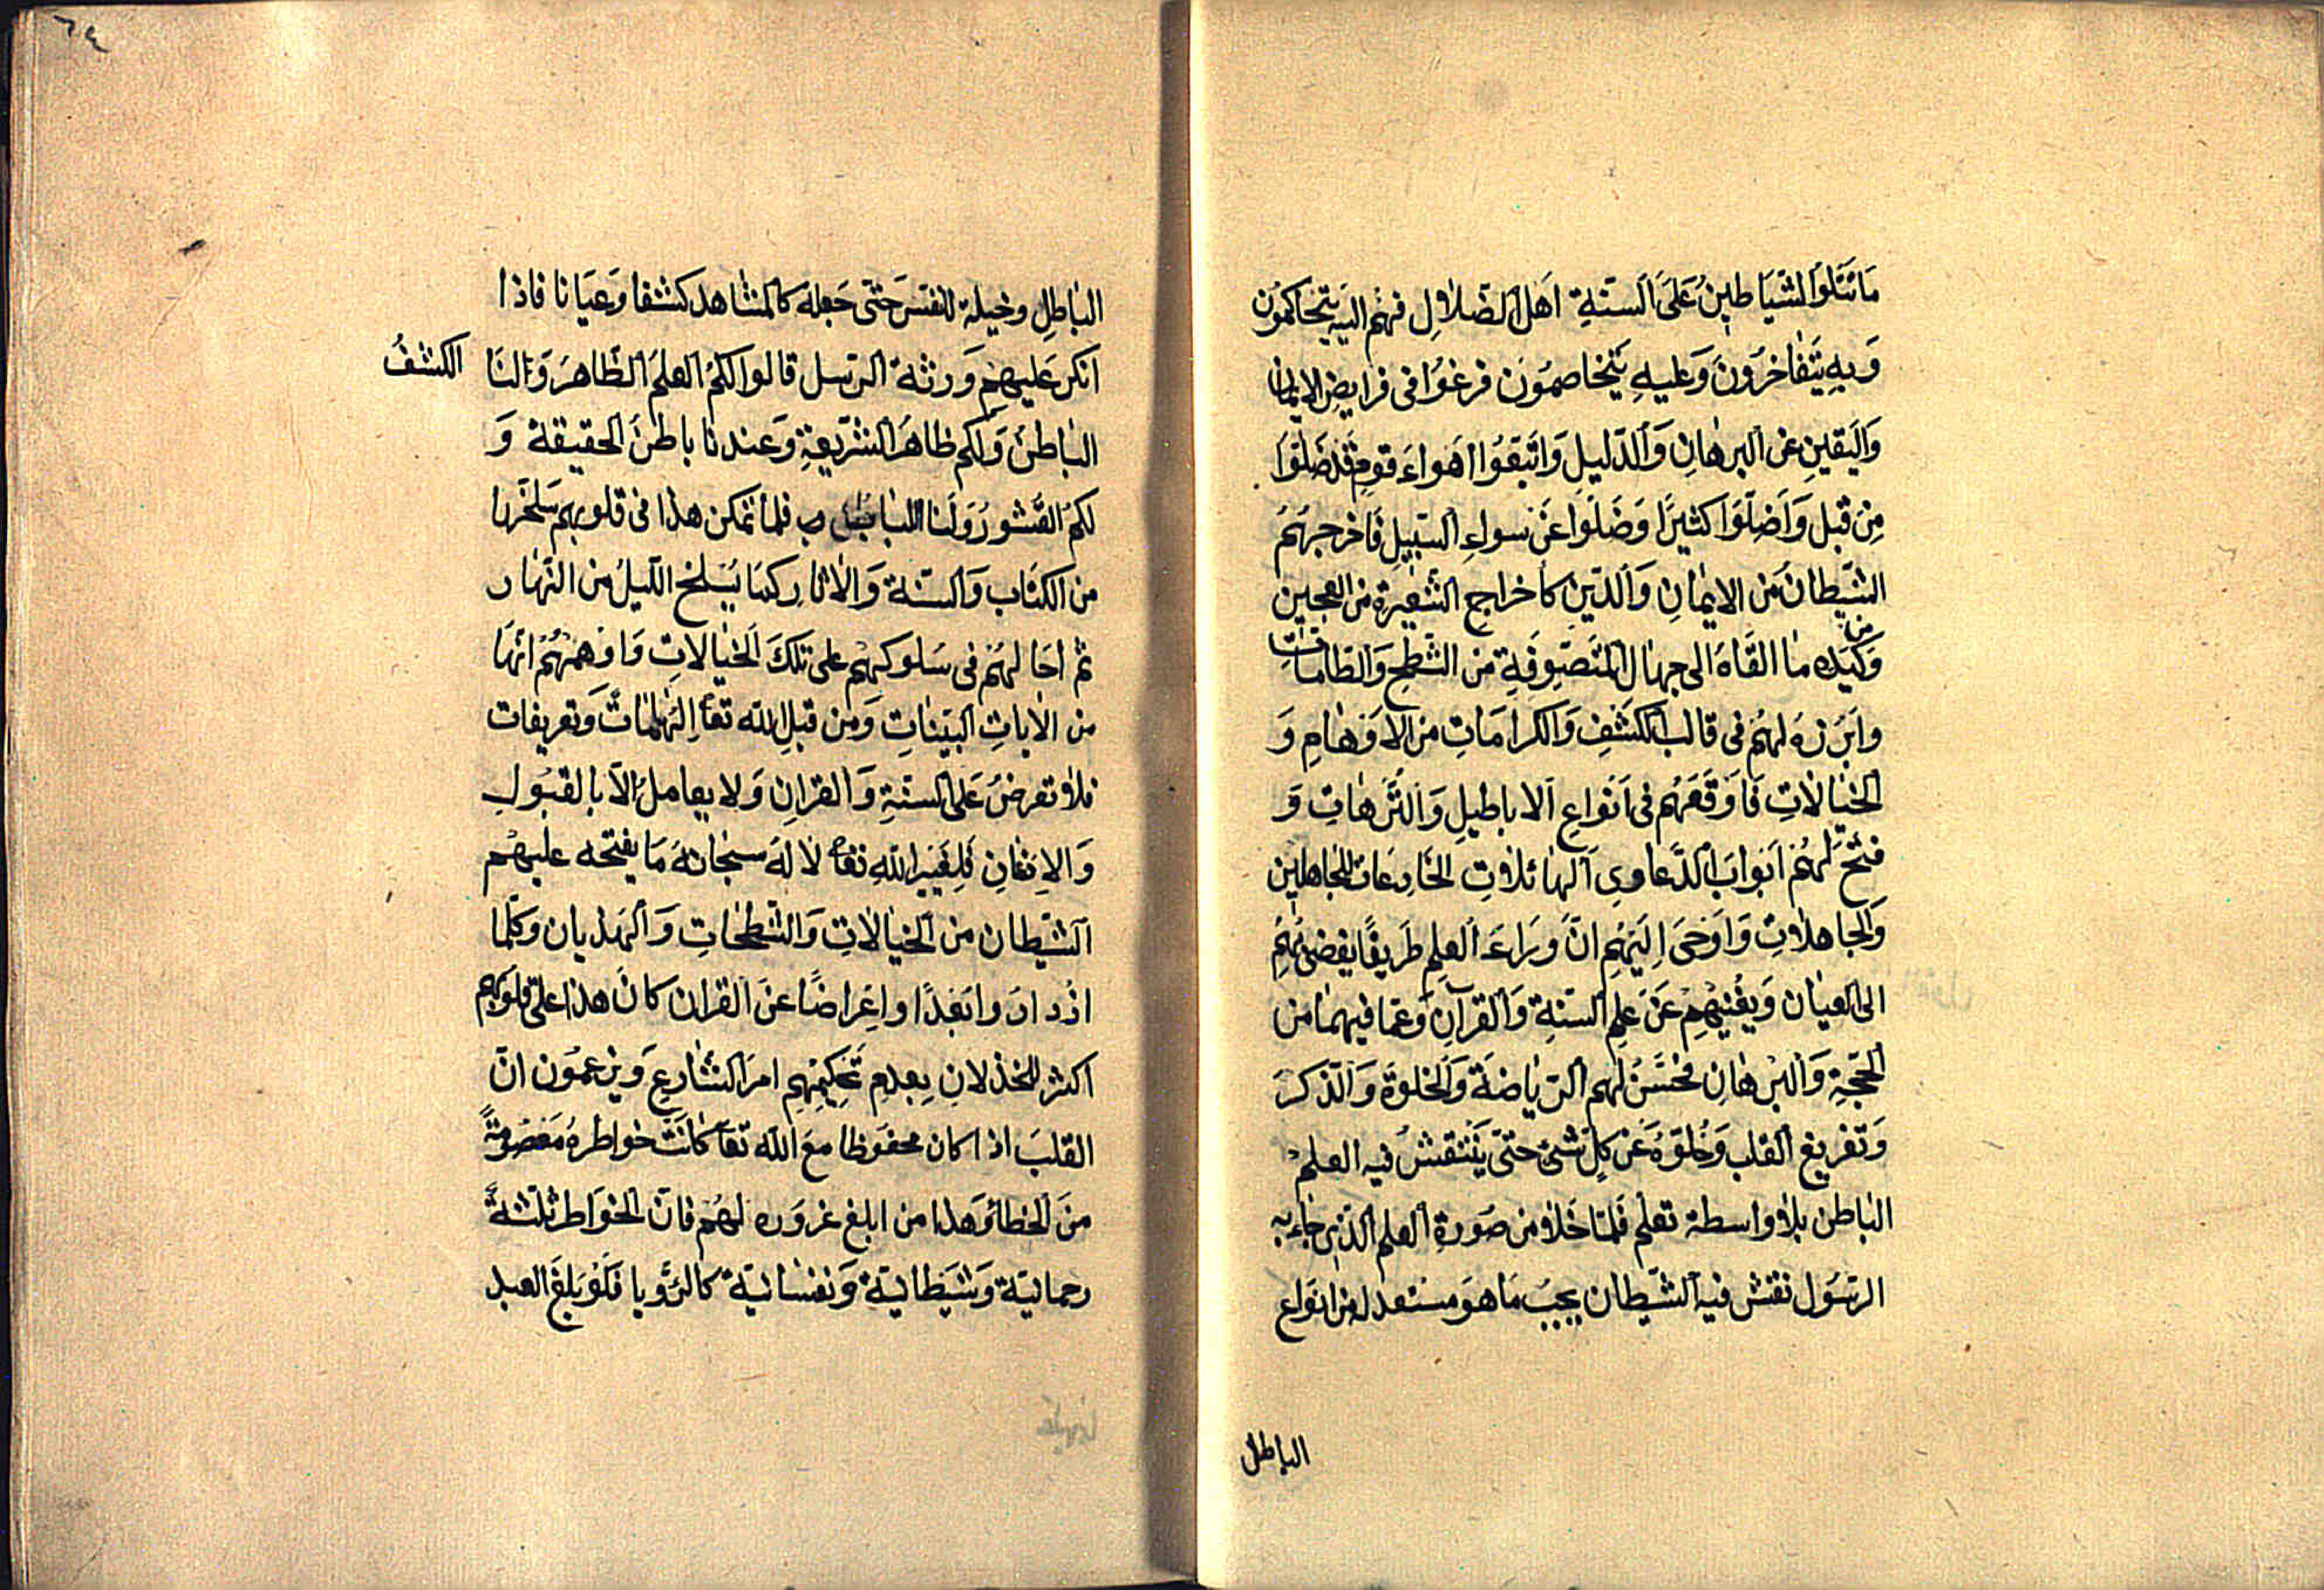 مَا تَتْلُوا الشَّيَاطِينُ عَلَى اَلْسِنَةِ اَهْلِ الضَّلَالِ فَهُم اِلَيهِ يَتَحَاكَمُون
وَبِهِ يَتَفَاخَرُونَ وَعَلَيهِ يَتَخَاصَمُونَ فرغوُا فى فرايض الايمان
وَاليَقينِ عن البرهَانِ وَالدَّليلِ وَاتَّبَعُوا اَهواءَ قومٍ قَد ضَلّوا
مِن قَبل وَاَضَلّوا كثيرًا وَضَلّوا عَنْ سواءِ السَّبيل فَاخرجهُم
الشّيطانُ من الايمَانِ وَالدّينِ كاخراج الشَّعيرَةِ من العجين
وَمن كَيدِه مَا القَاهُ الى جهال المتَصَوِّفَةِ من الشّطح وَالطّامَاتِ
وابَرزهُ لهُم فى قالب الكَشْفِ وَالكرامَاتِ من الاَوْهامِ وَ
الخيَالاتِ فَاَوقَعَهُم فى اَنواع الاباطيلِ وَالتُّرّهاتِ وَ
فتحَ لهُم اَبوابَ الدَّعاوى الهائلاتِ الخَادِعَات للجَاهلين
وَالجَاهلاتِ وَاَوحَى اِلَيهِم انَّ ورَاءَ العِلم طَريقًا يفضى بهِم
الى العيَان وَيُغْنيهم عَن علم السّنةِ وَالقرآن وَعمّا فيهمَا من
الحجّةِ وَالبُرهَانِ فحسَّنَ لهم الرّيَاضةَ وَالخلوَةَ وَالذّكرَ
وَتَفْريغَ القلبِ وَخُلوَّهُ عَن كلّ شئ حتّى يَنْتقشَ فيه العلمُ
البَاطن بلا واسطة تعلم فَلمّا خَلا من صَورة العلم الّذى جاء به
الرّسَول نقش فيه الشّيطان بحِسْبِ مَا هوَ مستعدّ له من انوَاع
الباطل
٦٤
البَاطِلِ وخيله للنفسَ حَتّى جَعله كالمشاهد كشفا وَعيَانا فاذا
انكر عَليهِم وَرثة الرّسل قالوا لكمُ العلمَ الظّاهرَ وَلنَا الكشفُ
البَاطنُ وَلكم ظاهرُ الشّريعَةِ وَعندنا باطنُ الحقيقة وَ
لكمُ القشورُ وَلَنا اللبابُ فلمّا تمكن هذا فى قلوبهم سَلخَهَا
من الكتَاب وَالسّنة وَالاثار كمَا يُسلخ اللّيلُ من النّهَار
ثم احَالهُم فى سَلوكهم على تلكَ الخيَالاتِ وَاوهمهُم انّهَا
من الاياتِ البيّناتِ وَمن قبلِ الله تعَا اِلهَامَاتٌ وَتعريفات
فلا تعرضُ عَلى السنّةِ وَالقرانِ وَلا يعامل الاّ بالقبُولِ
وَالاِذعَانِ فَلِغَيرِ اللهِ تعَا لا لهُ سبحَانهُ مَا يفتحه عليهم
الشّيطان من الخيَالاتِ وَالشّطحَاتِ وَالهَذيان وكلّما
ازدادَوا بَعُدًا واِعْراضًا عنَ القران كانَ هذا على قلوبهم
اكثر للخذلان بِعدمِ تَحكيمِهِم امرَ الشّارع وَيزعمُون انّ
القلبَ اذا كان محفوظا معَ الله تعَا كانَتْ خواطرهُ مَعصُومَةً
منَ الخطأ وَهذا من ابلغ غروَره لهُم فانّ الخوَاطر ثلٰثةٌ
رحمانيّة وَشيطانيّة وَنفسَانيّة كالرّؤيا فلَو بَلغَ العبد